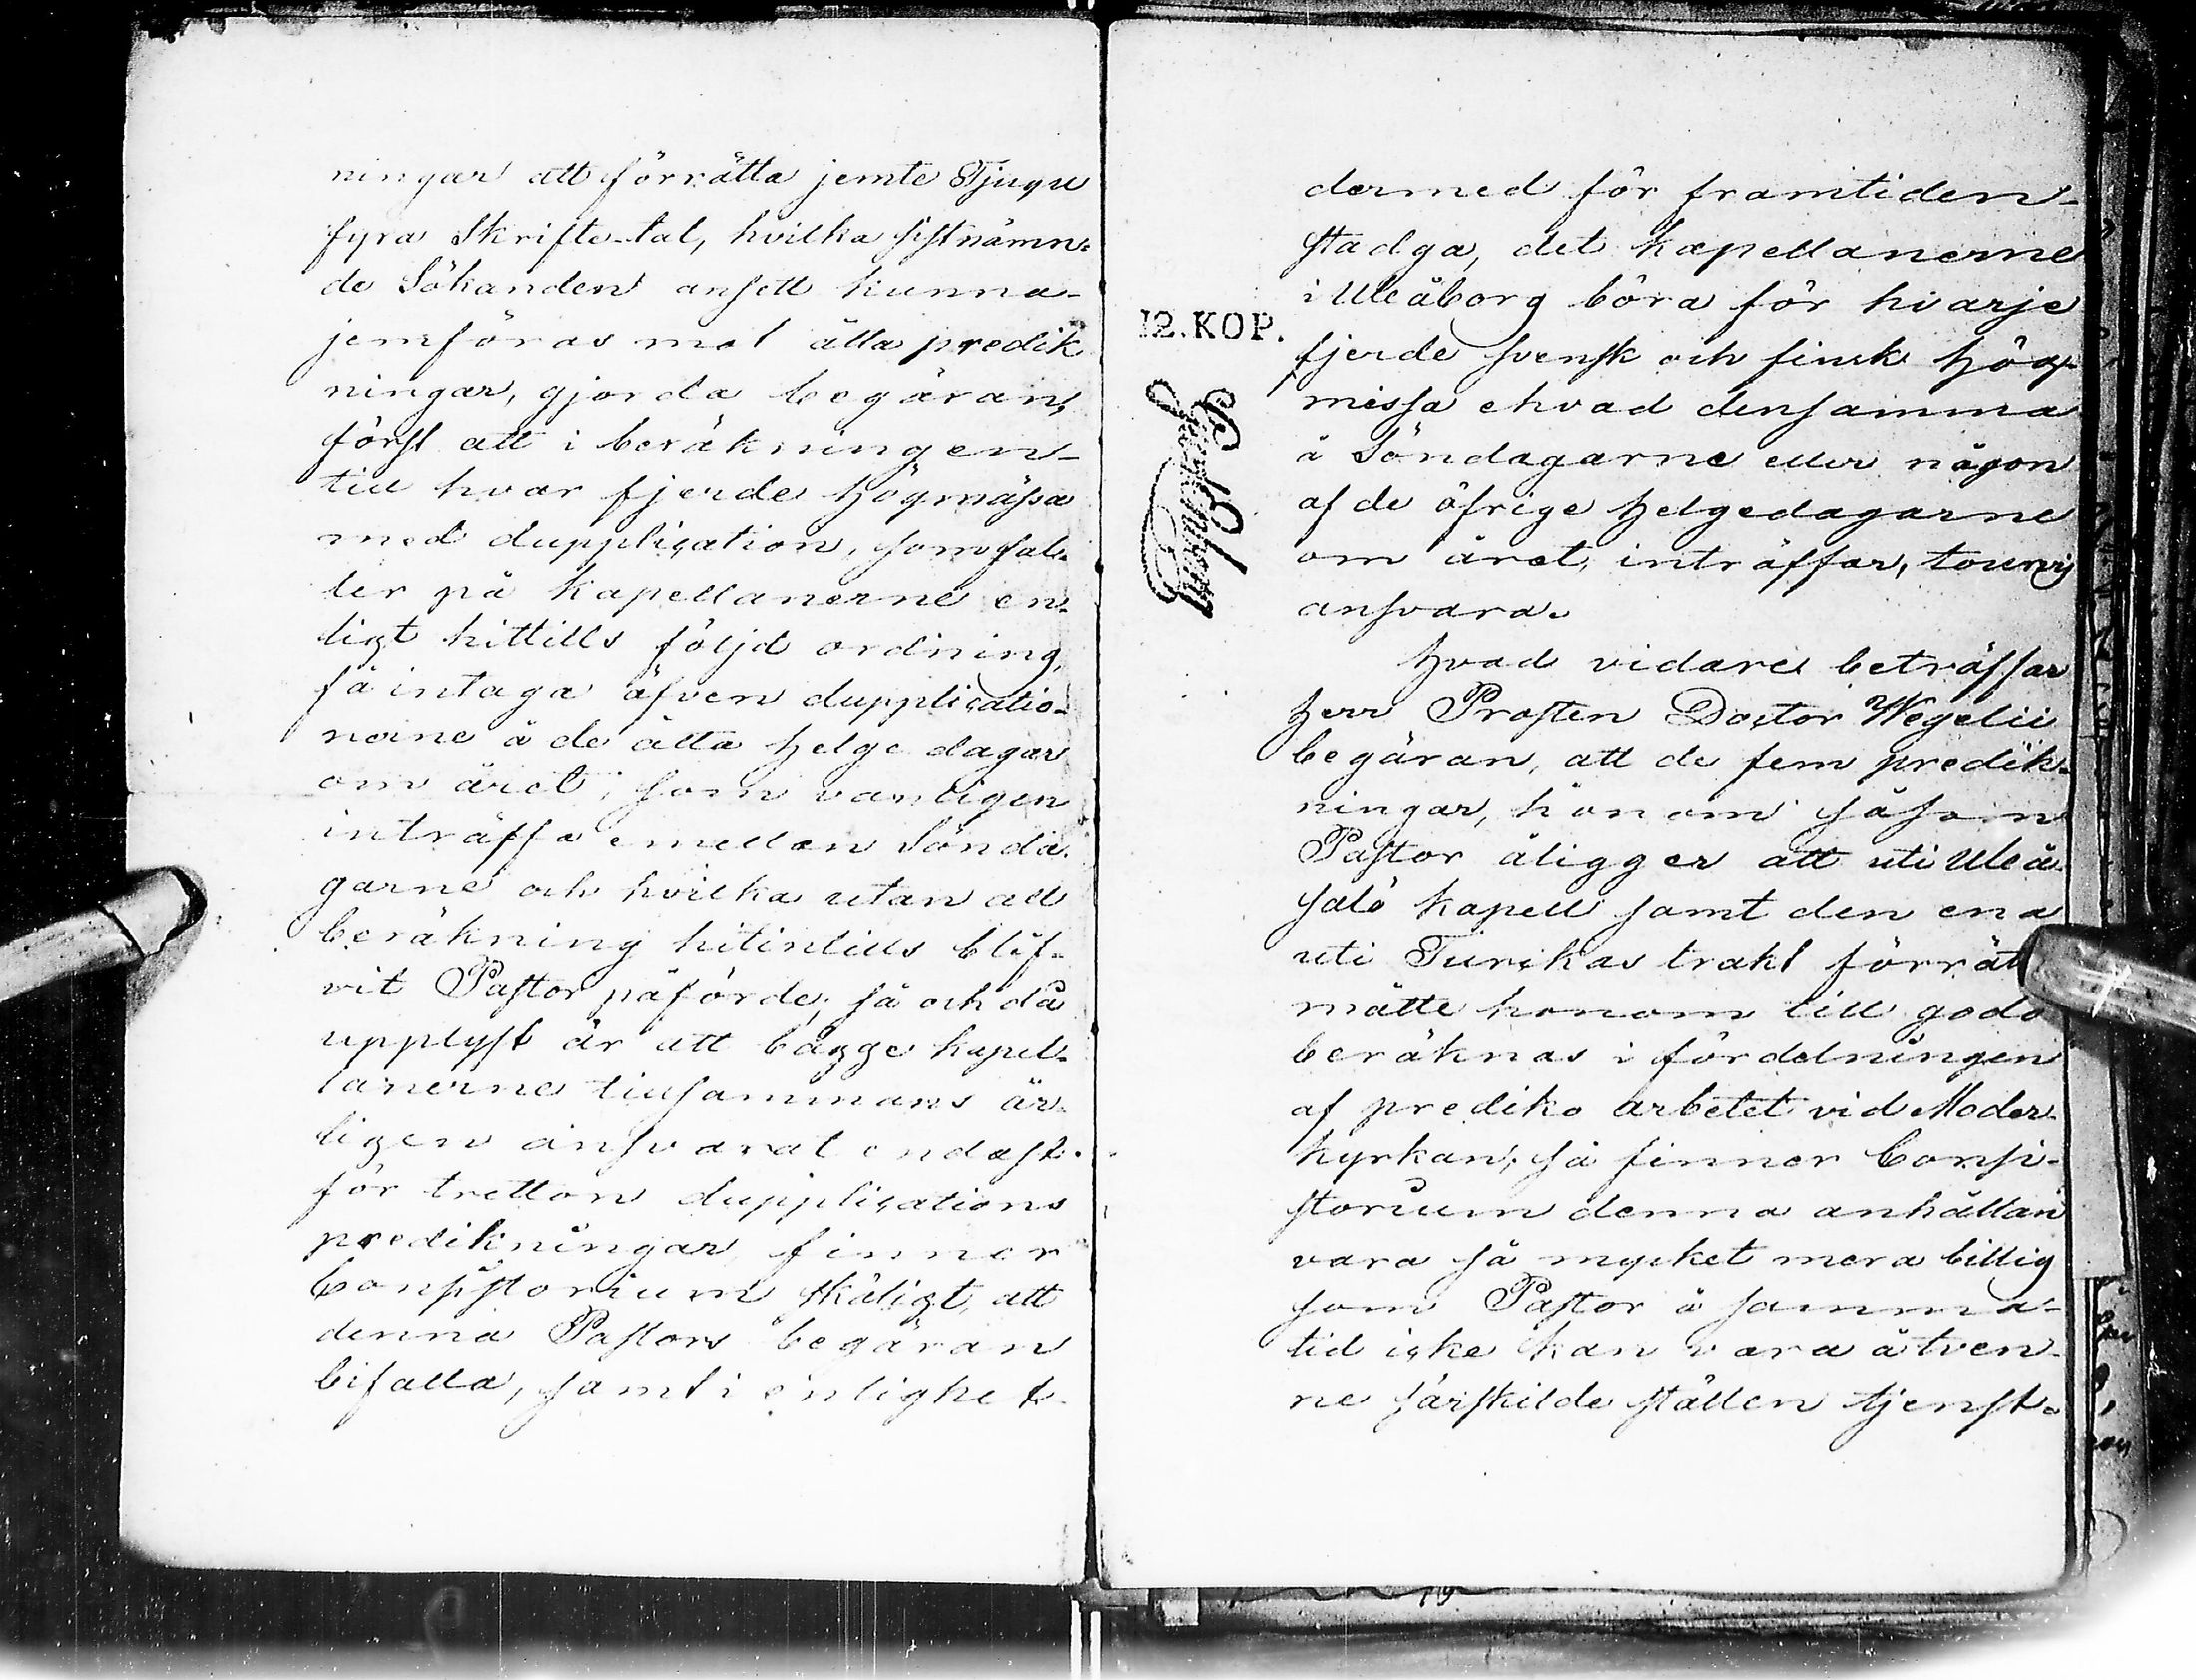 ningar att förrätta jemte Tjugu
fyra Skrifte-tal, hvilka sistnämn-
de Sökanden ansett kunna
jemföras mot åtta predik
ningar, gjorda begäran,
först att i beräkningen
till hvar fjerde högmässa
med dupplication, som fal-
ler på Kapellanerne en-
ligt hittills följd ordning,
få intaga äfven dupplicatio-
nerne å de åtta helge dagar
om året, som vanligen
inträffa emellan Sönda-
garne och hvilka utan all
beräkning hitintills blif-
vit Pastor påförde; så och då
upplyst är att bägge kapel-
lanerne tillsammans år-
ligen ansvarat endast
för tretton dupplications
predikningar, finner
Consistorium skäligt, att
denna Pastors begäran
bifalla, samt i enlighet
dermed för framtiden
stadga, det kapellanerne
i Uleåborg böra för hvarje
12.KOP.
fjerde svensk och finsk hög-
messa ehvad densamma
å Söndagarne eller någon
af de öfrige helgedagarne
om året, inträffar, tourvis
ansvara.
Hvad vidare beträffar
Herr Prosten Doctor Wegelii
begäran, att de fem predik-
ningar, honom såsom
Pastor åligger att uti Uleå-
salo kapell samt den ena
uti Turikas trakt förrät
måtte honom till godo
beräknas i fördelningen
af prediko arbetet vid Moder-
kyrkan; så finner Consi-
storium denna anhållan
vara så mycket mera billig
som Pastor å samma
tid icke kan vara å tven-
ne särskilde ställen tjenst-